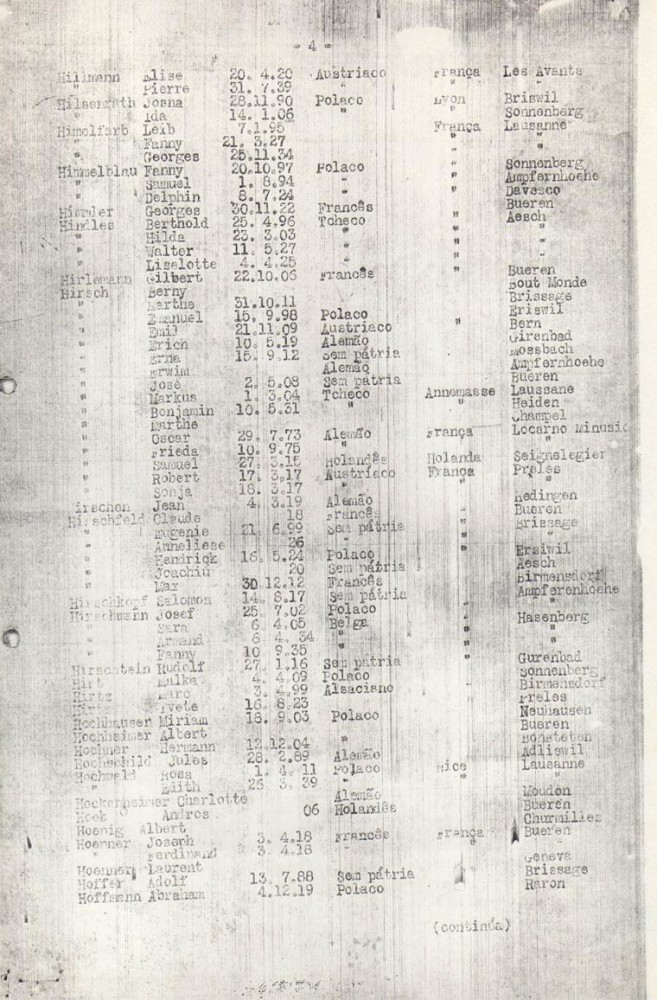 - 4 -
Hillmann Elise 20. 4.20 Austriaco França Les Avants
" Pierre 31. 7.39 "
Hilsenrath Josna 28.11.90 Polaco Lyon Briswil
" Ida 14. 1.06 " " Sonnenberg
Himelfarb Leib 7.1.95 França Lausanne
" Fanny 21. 3.27 "
" Georges 25.11.34 "
Himmelblau Fanny 20.10.97 Polaco " Sonnenberg
" Samuel 1. 8.94 " " Ampfernhoehe
" Delphin 8. 7.24 " " Davesco
Himmler Georges 30.11.22 Francês " Bueren
Hindles Berthold 25. 4.96 Tcheco " Aesch
" Hilda 23. 3.03 " " "
" Walter 11. 5.27 " " "
" Liselotte 4. 4.25 " "
Hirlemann Gilbert 22.10.06 Francês Bueren
Hirsch Berny Bout Monde
" Marthe 31.10.11 Brissage
" Emanuel 15. 9.98 Polaco Eriswil
" Emil 21.11.09 Austriaco " Bern
" Erich 10. 5.19 Alemão Girenbad
" Erna 15. 9.12 Sem pátria Mossbach
" Erwim Alemão Ampfernhoehe
" José 2. 5.08 Sem patria Bueren
" Markus 1. 3.04 Tcheco Annemasse Laussane
" Benjamin 10. 5.31 " " Heiden
" Marthe Champel
" Oscar 29. 7.73 Alemão França Locarno Minusio
" Frieda 10. 9.75
" Samuel 27. 3.15 Holandês Holanda Seignelegier
" Robert 17. 3.17 Austríaco França Preles
" Sonja 18. 3.17 "
Hirschon Jean 4. 3.19 Alemão " Hedingen
Hirschfeld Claude 18 Francês " Bueren
" Eugenie 21. 6.99 Sem pátria " Brissage
" Anneliese 26 "
" Hendrick 16. 5.24 Polaco " Ersiwil
" Joachiu 20 Sem pátria " Aesch
" Max 30.12.12 Francês " Birmensdorf
Hirschkopf Salomon 14. 8.17 Sem pátria " Ampferenhoehe
Hirschmann Josef 25. 7.02 Polaco "
" Sara 6 4.05 Belga " Hasenberg
" Armand 8 4. 34 " " "
" Fanny 10 9.35 "
Hirschtein Rudolf 27. 1.16 Sem pátria " Gurenbad
Hirt Malka 4. 4.09 Polaco " Sonnenberg
Hirtz Marc 3. 4.99 Alsaciano " Birmensdorf
Yvete 16. 8.23 " Preles
Hochhauser Miriam 18. 9.03 Polaco " Neuhausen
Hochheimer Albert " Bueren
Hochner Hermann 12.12.04 " " Bonsteten
Hochschild Jules 28. 2.89 Alemão " Adliswil
Hochwald Rosa 1. 4. 11 Polaco Nice Lausanne
" Edith 25 3. 39 " "
Hockenheimer Charlotte Alemão Moudon
Hoek Andros 06 Holandês Bueren
Hoenig Albert Churmilles
Hoenner Joseph 3. 4.18 Francês França Bueren
" Ferdinand 3. 4.18 "
Hoenner Laurent Geneva
Hoffer Adolf 13. 7.88 Sem pátria Brissage
Hoffmann Abraham 4.12.19 Polaco Haron
(continúa)